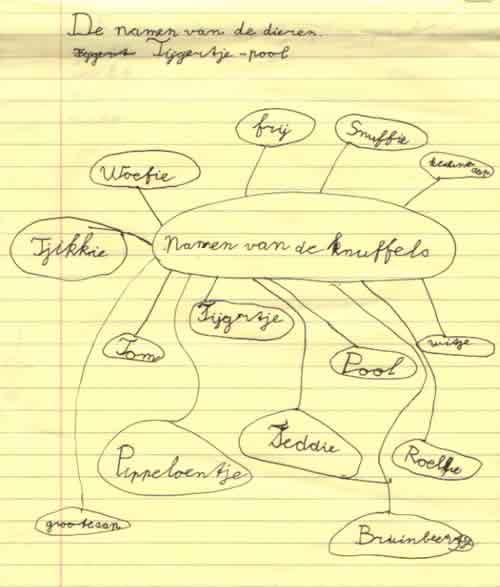 De namen van de dieren.
Tijgertje - pool
frij
Snuffie
Woefie
Namen van de knuffels
Tjikkie
Tijgertje
witje
Tom
Pool
Teddie
Roelfie
Pippeloentje
groteaap
Bruinbeertje